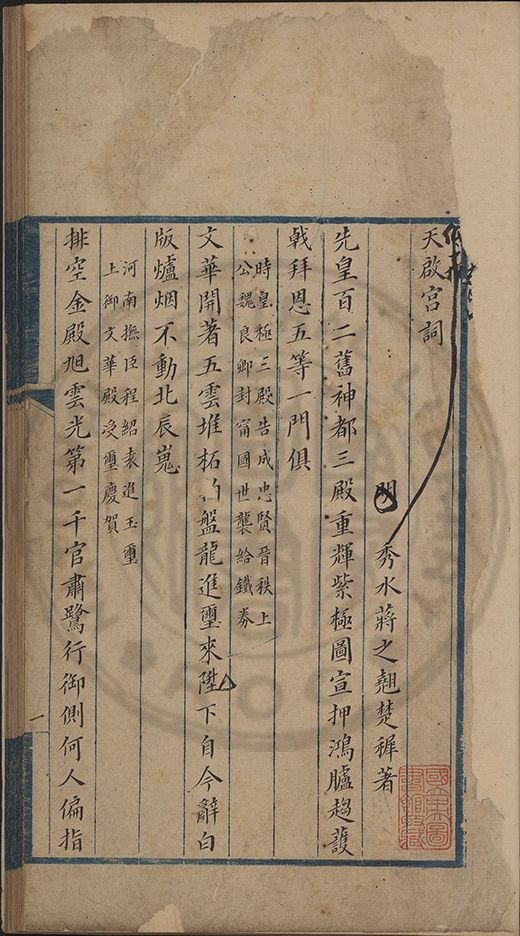 天啟宮詞
明 秀水蔣之翹楚穉著
先皇百二舊神都三殿重輝紫極圖宣押鴻臚趨護
戟拜恩五等一門俱
時皇極三殿告成忠賢晉秩上
公魏良卿封甯國世襲給鐵券
文華開著五雲堆柘 盤龍進璽來陞下自今辭白
版爐烟不動北辰嵬
河南撫臣程紹奏進玉璽
上御文華殿受璽慶賀
排空金殿旭雲光第一千官肅鷺行御側何人偏指
一
國立中央圖書館收藏